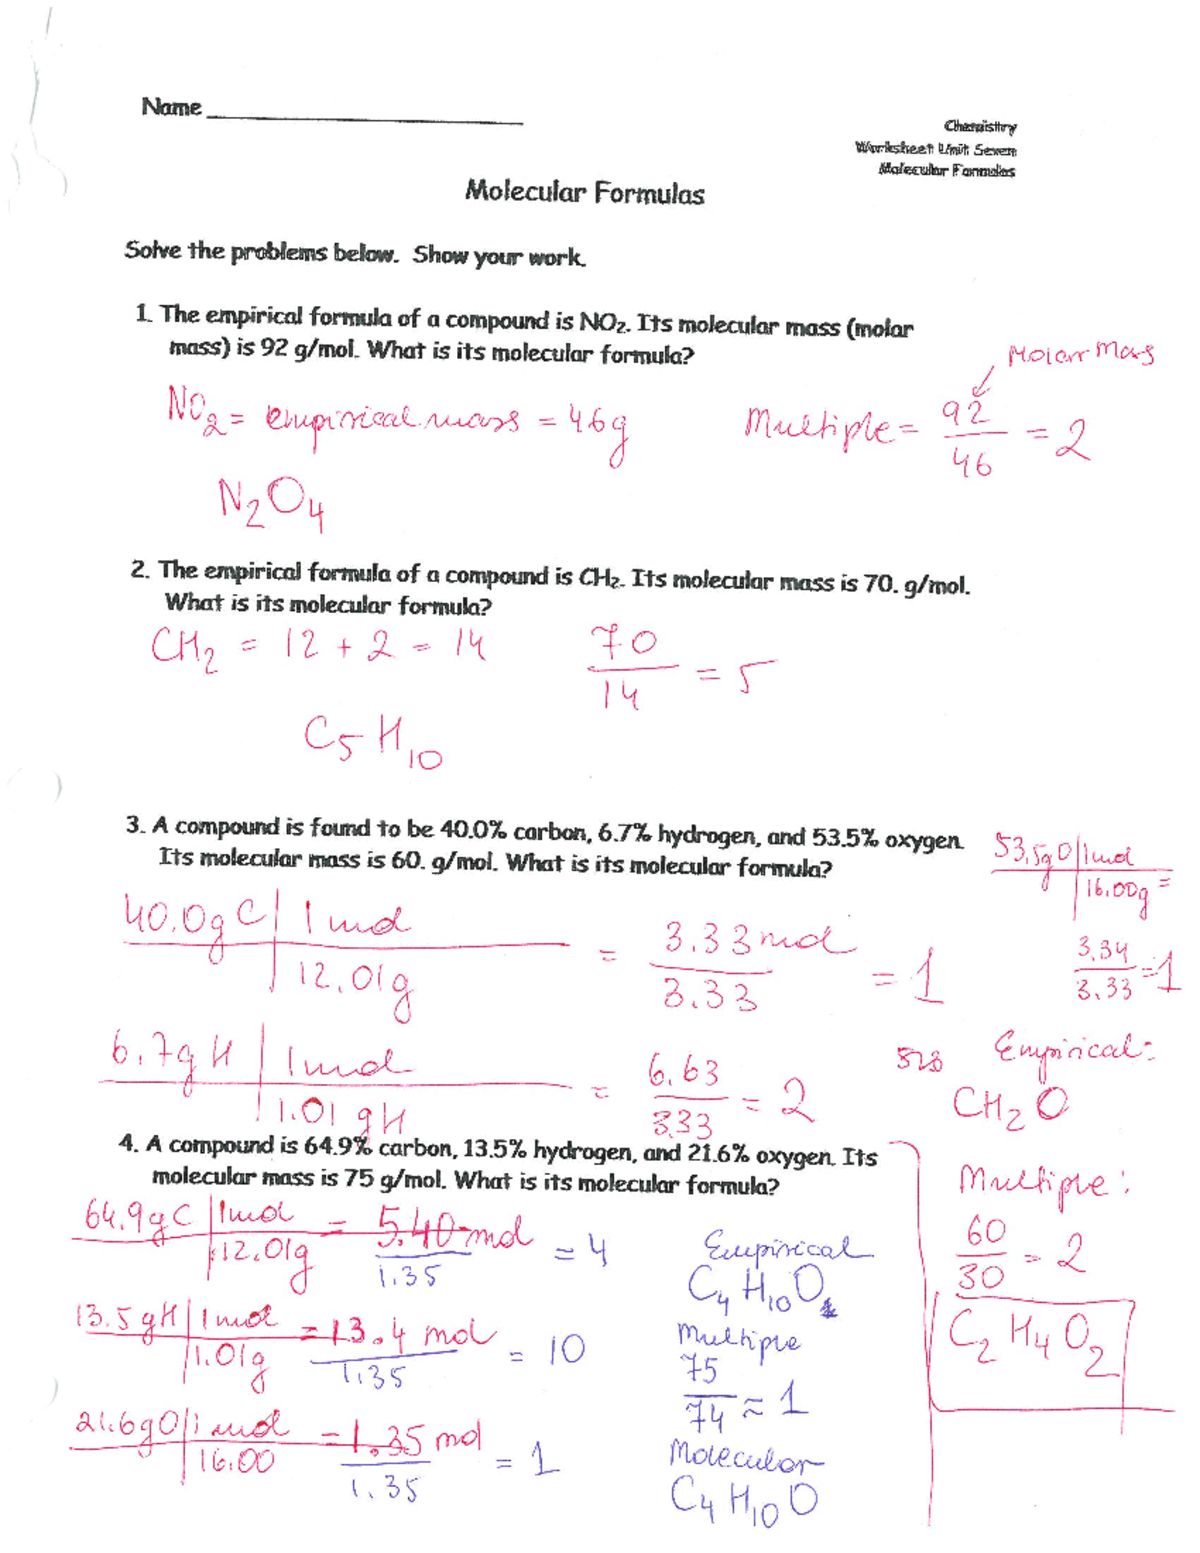 Name
Chemistry
Worksheet Unit Seven
Molecular Formulas
Molecular Formulas
Solve the problems below. Show your work.
1. The empirical formula of a compound is NO₂. Its molecular mass (molar
mass) is 92 g/mol. What is its molecular formula?
Molar Mass
NO₂ = empirical mass = 46g
Multiple = 92/46 = 2
N₂O₄
2. The empirical formula of a compound is CH₂. Its molecular mass is 70. g/mol.
What is its molecular formula?
CH₂ = 12 + 2 = 14
70/14 = 5
C₅H₁₀
3. A compound is found to be 40.0% carbon, 6.7% hydrogen, and 53.5% oxygen.
Its molecular mass is 60. g/mol. What is its molecular formula?
53,5g O | 1 mol
16.00g =
3.34/3.33 = 1
40.0g C | 1 mol
12.01g
= 3.33 mol/3.33 = 1
6.7g H | 1 mol
1.01 gH
= 6.63/3.33 = 2
Empirical:
CH₂O
Multiple:
60/30 = 2
C₂H₄O₂
4. A compound is 64.9% carbon, 13.5% hydrogen, and 21.6% oxygen. Its
molecular mass is 75 g/mol. What is its molecular formula?
64.9g C | 1 mol
12.01g
= 5.40 mol/1.35 = 4
13.5g H | 1 mol
1.01g
= 13.4 mol/1.35 = 10
21.6g O | 1 mol
16.00
= 1.35 mol/1.35 = 1
Empirical
C₄H₁₀O
Multiple
75/74 ≈ 1
Molecular
C₄H₁₀O